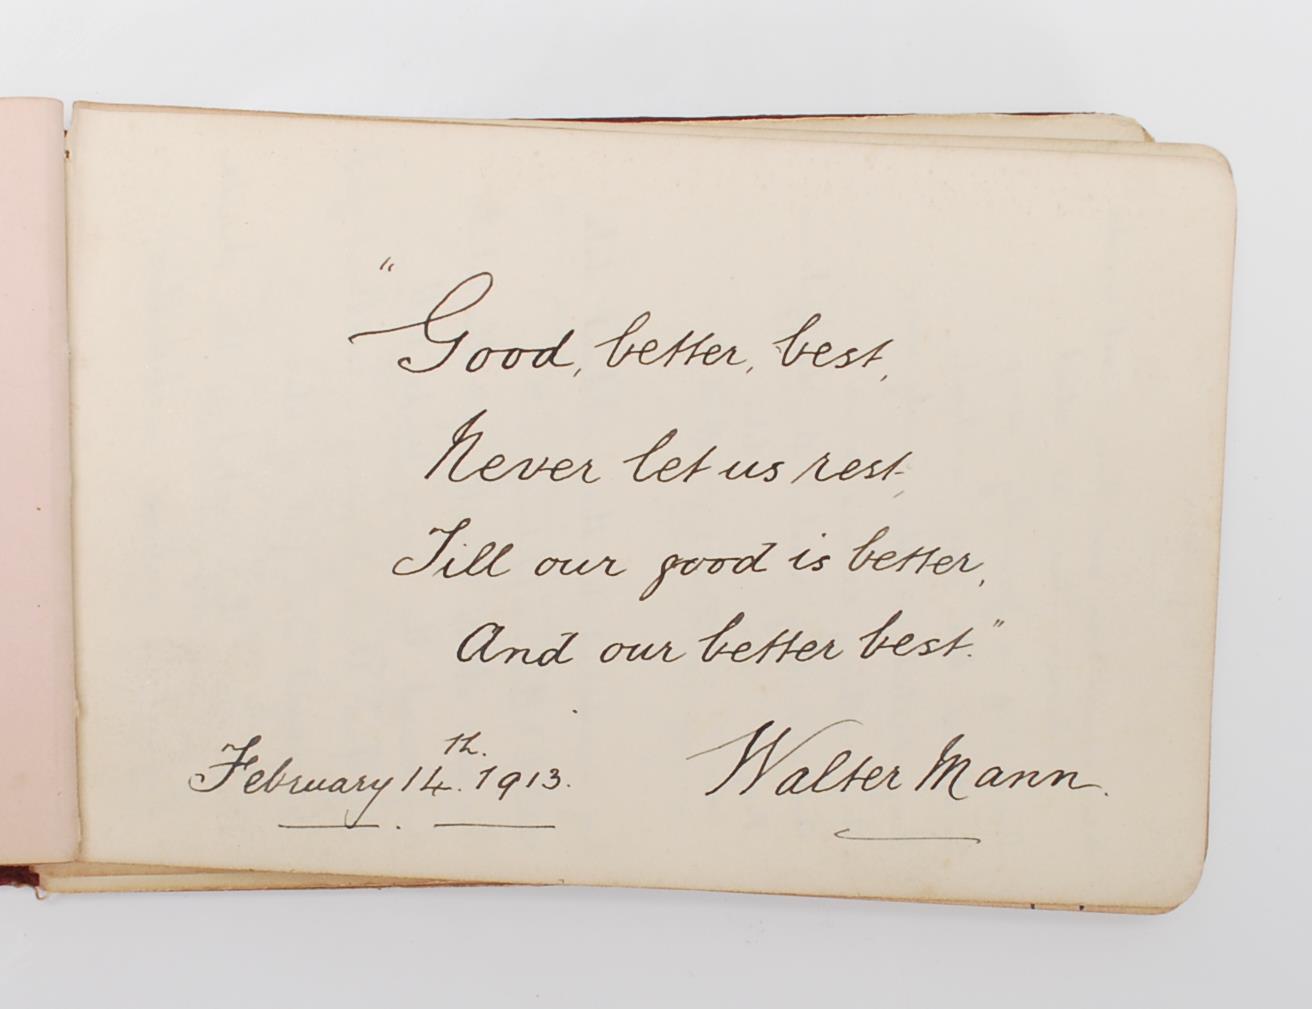 "Good, better, best,
Never let us rest,
Till our good is better,
And our better best."
February 14th. 1913.
Walter Mann.